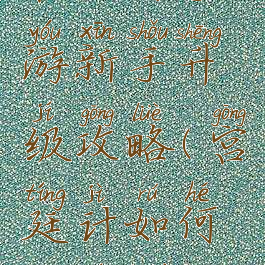 yóu xīn shǒu shēng
游新手升
jí gōng lüè gōng
级攻略(宫
tíng jì rú hé
廷计如何